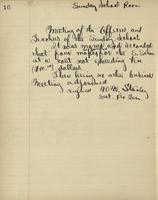 16
Sunday School Room
Meeting of the Officers and
Teachers of the Sunday School
It was moved and seconded
that four maps for the S. School
at a cost not exceeding Ten
dollars
There being no other business
Meeting adjourned
signed W. W. Stanley
Sect. Pro Tem